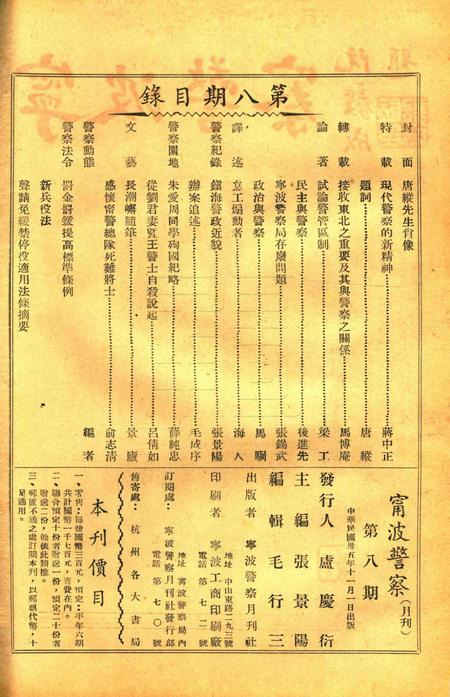 第八期目錄
封面 唐縱先生肖像
特載 現代警察的新精神 蔣中正
題詞 唐縱
轉載 接收東北之重要及其與警察之關係 馬博庵
論著 試論警管區制 梁工
民主與警察 後進先
寧波警察局存廢問題 張錫武
政治與警察 馬驥
譯述 怠工煽動者 海人
警察紀錄 鎮海警政近貌 張景陽
辦案追述 毛成序
警察園地 朱愛周同學殉國紀略 薛純忠
從劉君素覽王警士自殺說起 呂倩如
文藝 長潮嘶隨筆 景廬
感懷甯警總隊死難將士 俞志清
警察動態 編者
警察法令 罰金罰鍰提高標準條例
新兵役法
聲請免緩禁停役適用法條摘要
甯波警察(月刊)
第八期
中華民國卅五年十一月一日出版
發行人 盧慶衍
主編 張景陽
編輯 毛行三
出版者 寧波警察月刊社
地址 中山東路二九三號
印刷者 寧波工商印刷廠
電話第七二號
訂閱處： 寧波警察月刊社發行部
地址 寧波警察局內
電話第一〇號
舊寄處： 杭州各大書局
本刊價目
一、零售：每冊國幣三百元，預定：半年六期共計國幣一千七百元，寄費在內。
二、聯合預定十份者附送一份，預定二十份者附送二份，他依此類推。
三、郵匯不通之處訂閱本刊，以郵票代幣，十足通用。